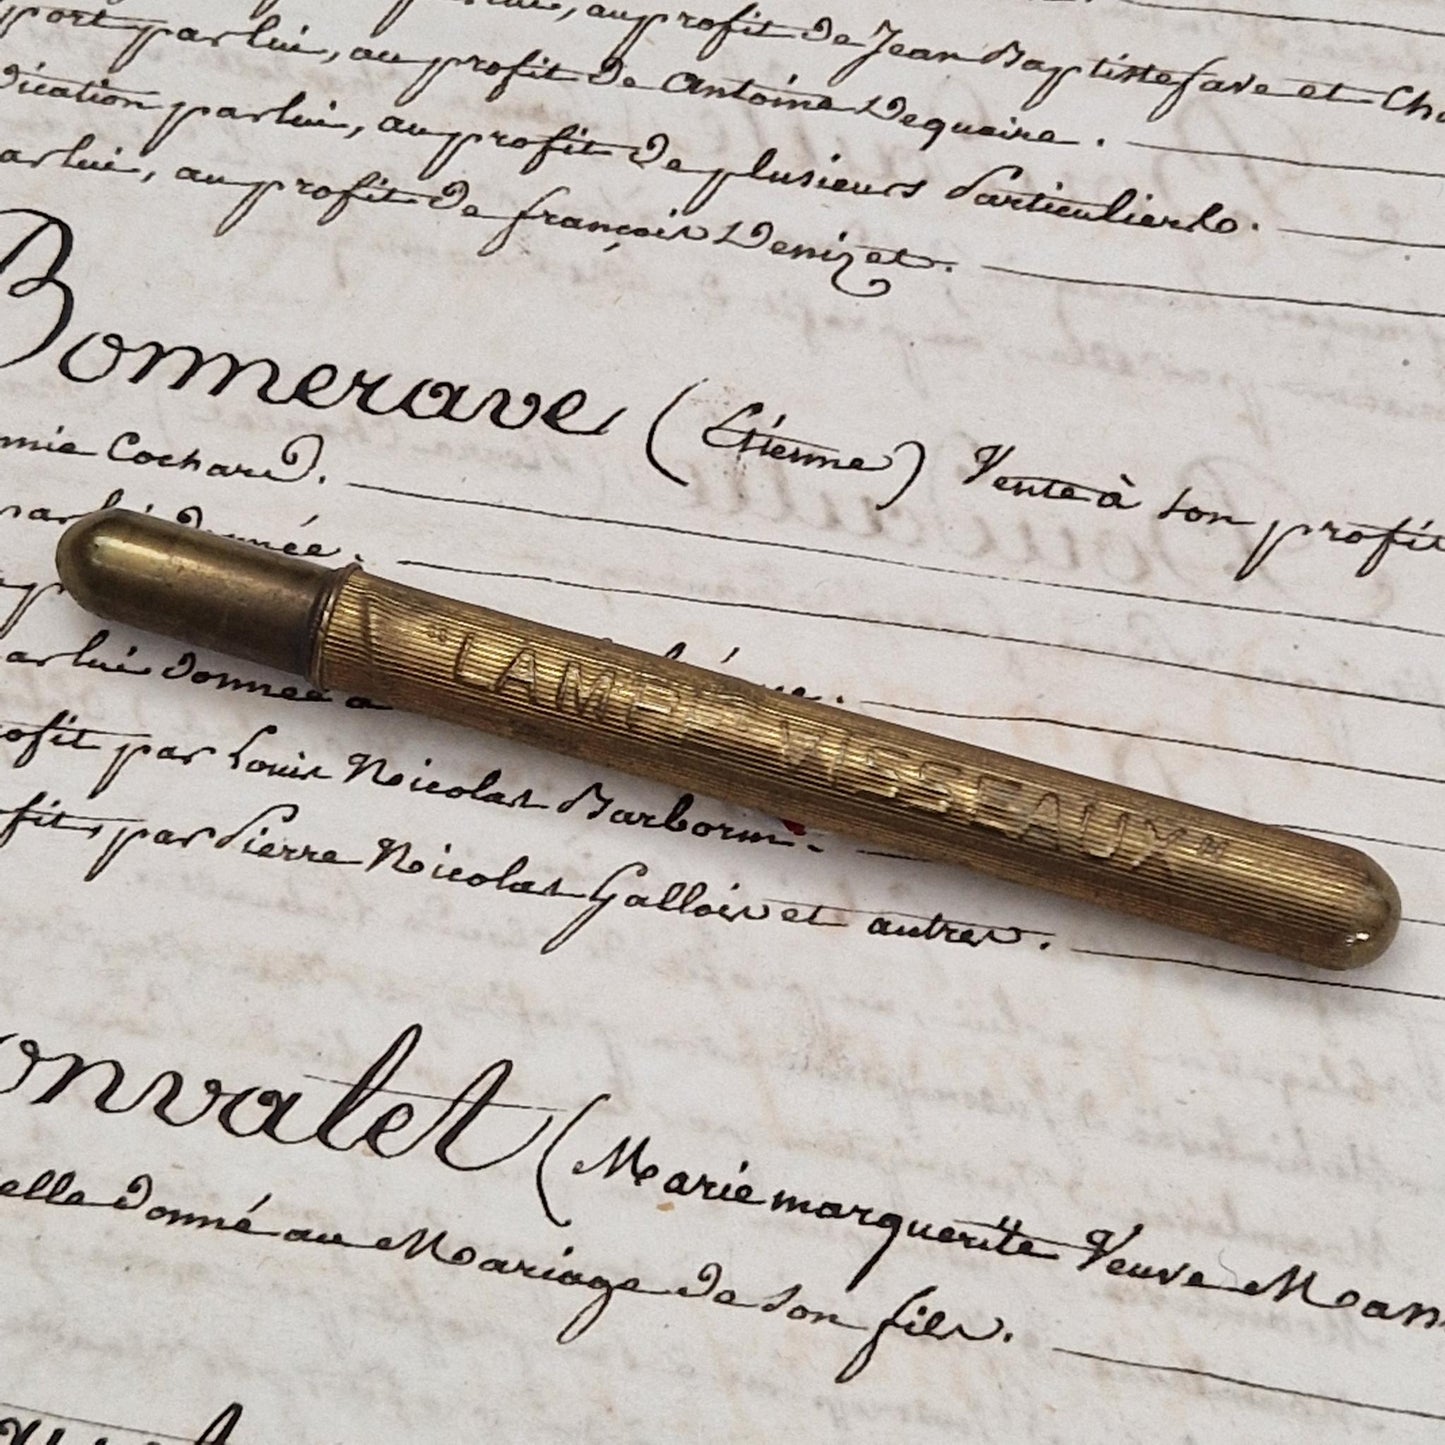 par lui, au profit de Jean Baptiste fave et
port par lui, au profit de Antoine Dequaire.
dication par lui, au profit de plusieurs Particuliers.
par lui, au profit de françois Denizet.
Bonnerave (Etienne) Vente à son profit
mie Cochard.
par lui Donnée.
"LAMPE VISSEAUX"
par lui Donnée a
profit par Louis Nicolas Barbornn.
profit, par Pierre Nicolas Gallois et autres.
onvalet (Marie marguerite Veuve
elle Donné au Mariage de son fils.